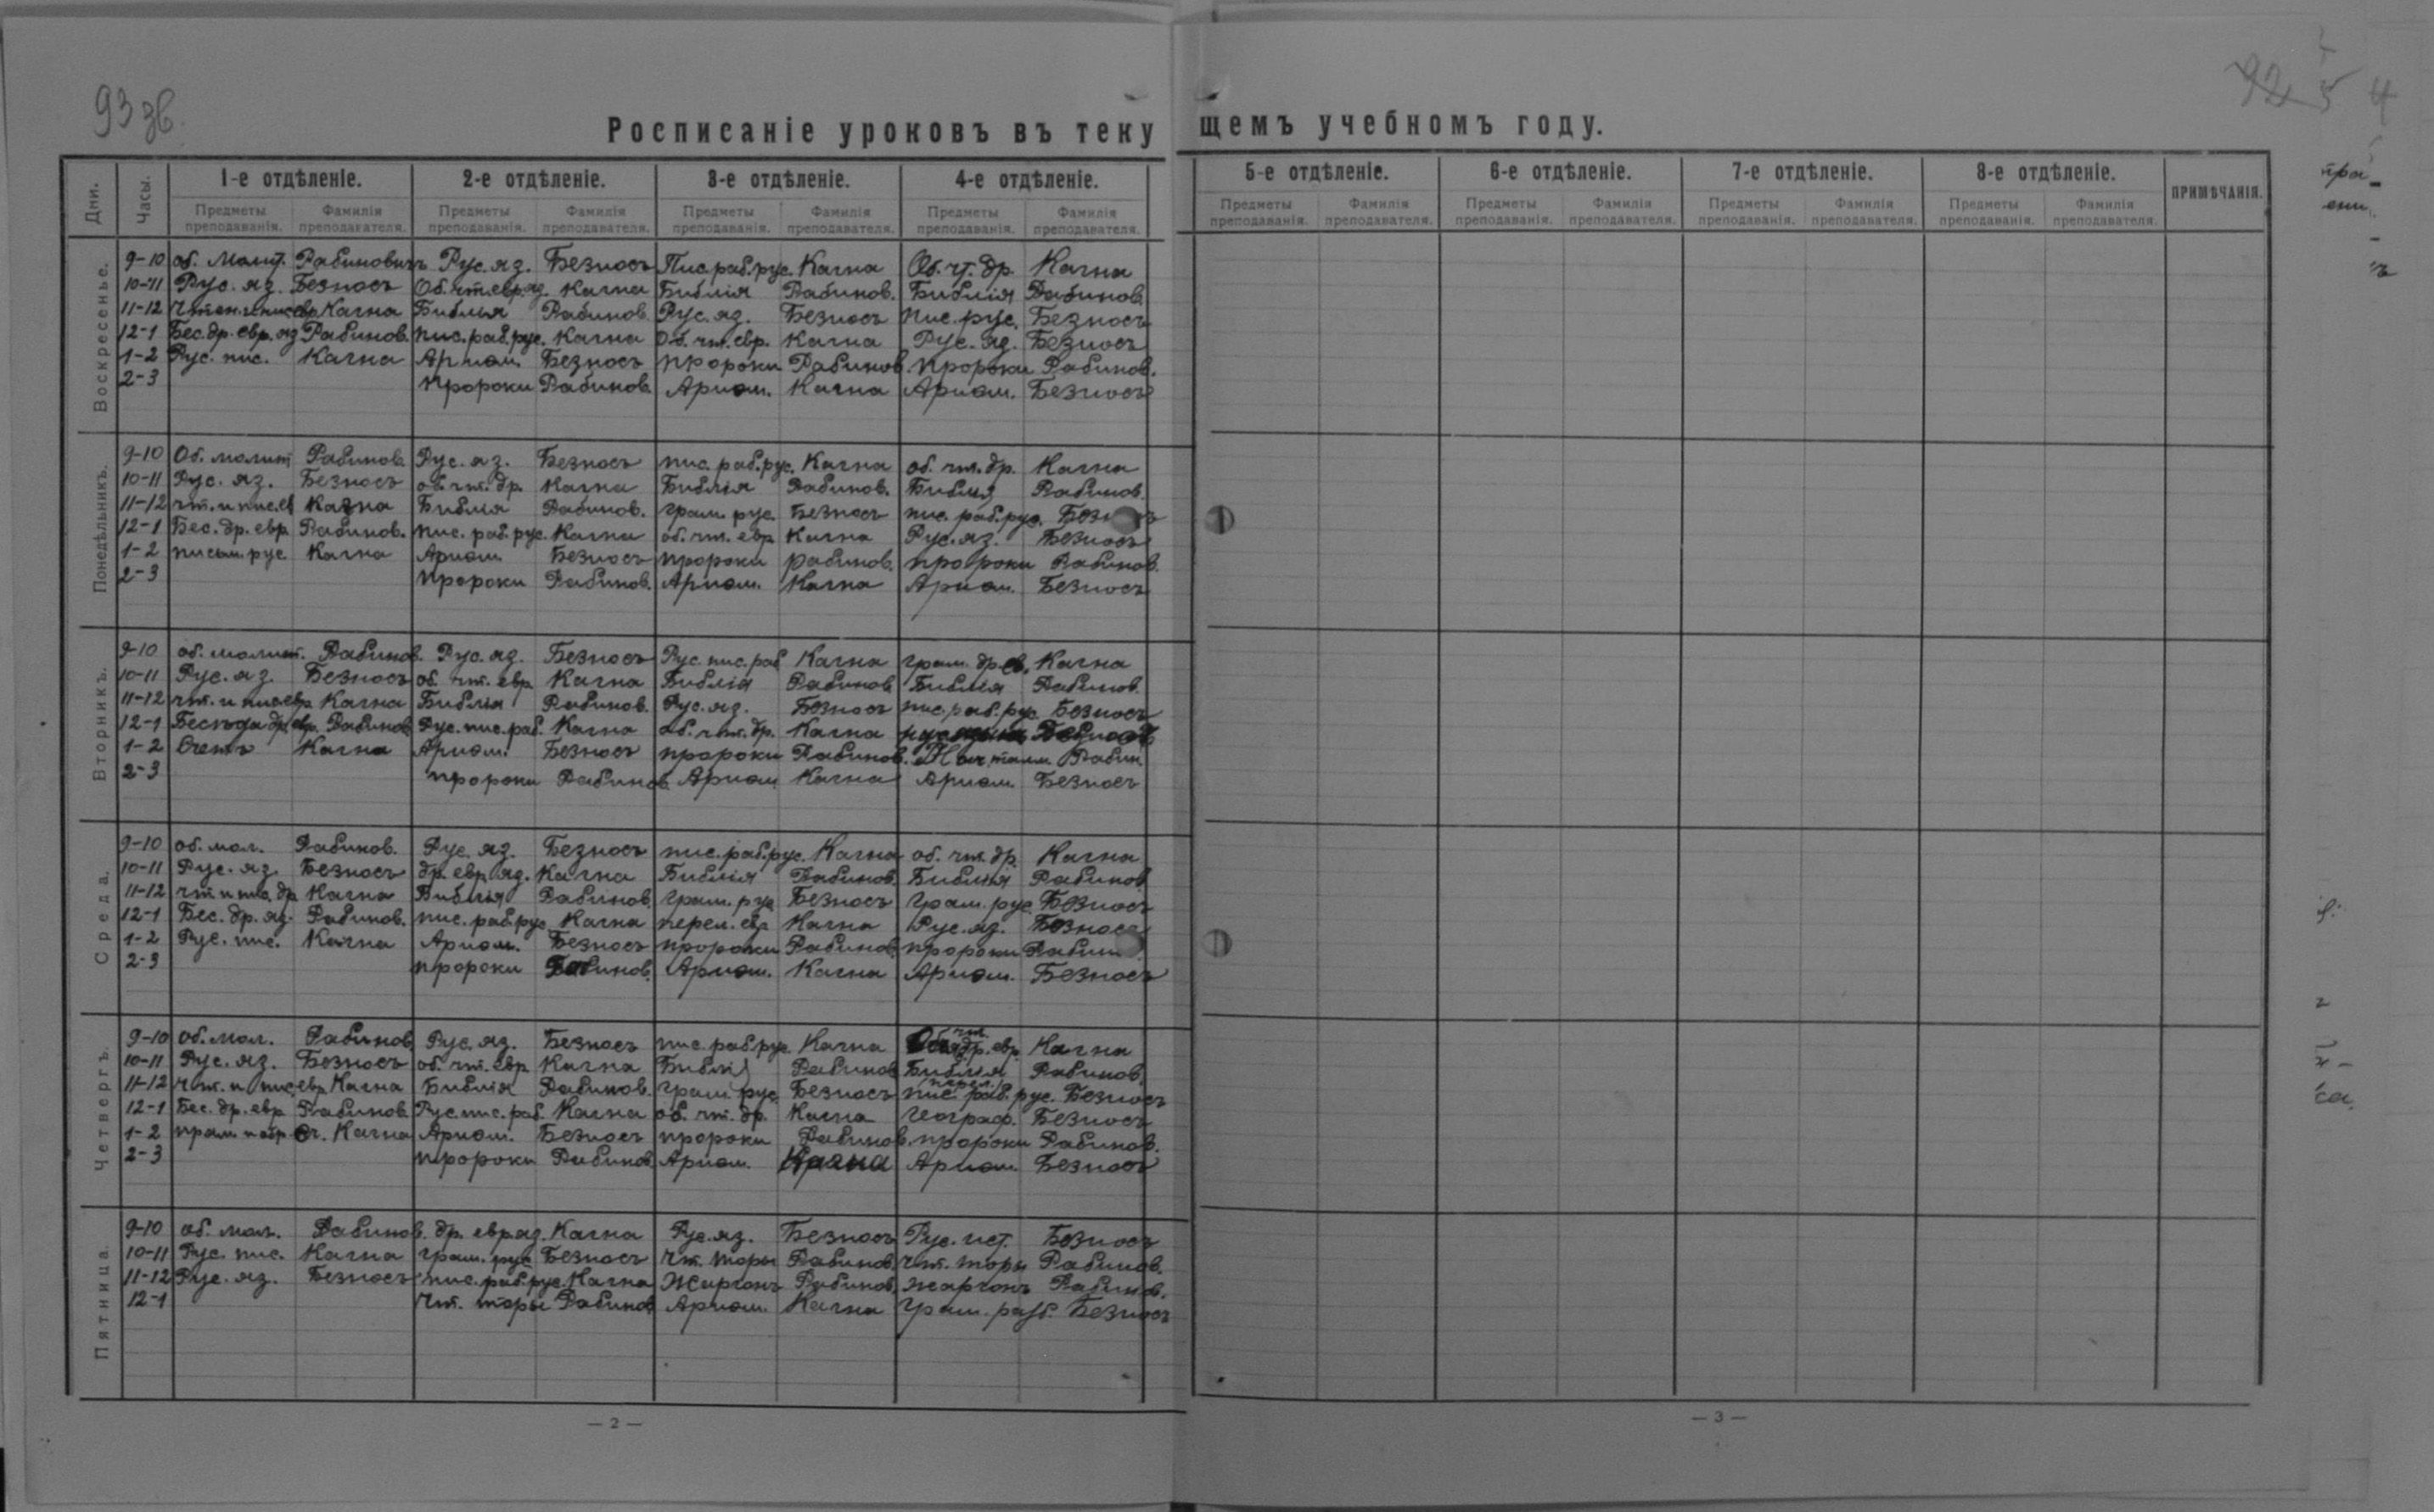 93 зв.
92 5 4
Росписаніе уроковъ въ теку щемъ учебномъ году.
Дни. Часы. 1-е отдѣленіе. 2-е отдѣленіе. 3-е отдѣленіе. 4-е отдѣленіе. 5-е отдѣленіе. 6-е отдѣленіе. 7-е отдѣленіе. 8-е отдѣленіе. ПРИМѢЧАНІЯ.
Предметы преподаванія. Фамилія преподавателя. Предметы преподаванія. Фамилія преподавателя. Предметы преподаванія. Фамилія преподавателя. Предметы преподаванія. Фамилія преподавателя. Предметы преподаванія. Фамилія преподавателя. Предметы преподаванія. Фамилія преподавателя. Предметы преподаванія. Фамилія преподавателя. Предметы преподаванія. Фамилія преподавателя.
Воскресенье.
9-10 об. молит. Рабиновичъ Рус. яз. Безносъ Пис. раб. рус. Кагна Об. чт. др. Кагна
10-11 Рус. яз. Безносъ Об. чт. евр. яз. Кагна Библія Рабинов. Библія Рабинов.
11-12 Чтен. и пис. евр. Кагна Библія Рабинов. Рус. яз. Безносъ пис. рус. Безносъ
12-1 Бес. др. евр. яз. Рабинов. пис. раб. рус. Кагна Об. чт. евр. Кагна Рус. яз. Безносъ
1-2 Рус. пис. Кагна Ариѳм. Безносъ пророки Рабинов. Пророки Рабинов.
2-3 Пророки Рабинов. Ариѳм. Кагна Ариѳм. Безносъ
Понедѣльникъ.
9-10 Об. молит. Рабинов. Рус. яз. Безносъ пис. раб. рус. Кагна об. чт. др. Кагна
10-11 Рус. яз. Безносъ об. чт. др. Кагна Библія Рабинов. Библія Рабинов.
11-12 чт. и пис. ев. Кагна Библія Рабинов. грам. рус. Безносъ пис. раб. рус.
12-1 Бес. др. евр. Рабинов. пис. раб. рус. Кагна об. чт. евр. Кагна Рус. яз. Безносъ
1-2 письм. рус. Кагна Ариѳм. Безносъ пророки рабинов. пророки Рабинов.
2-3 Пророки Рабинов. Ариѳм. Кагна Ариѳм. Безносъ
Вторникъ.
9-10 об. молит. Рабинов. Рус. яз. Безносъ Рус. пис. раб. Кагна грам. др. ев. Кагна
10-11 Рус. яз. Безносъ об. чт. евр. Кагна Библія Рабинов. Библія Рабинов.
11-12 чт. и пис. евр. Кагна Библія Рабинов. Рус. яз. Безносъ пис. раб. рус. Безносъ
12-1 Бесѣда др. евр. Рабинов. Рус. пис. раб. Кагна об. чт. др. Кагна Безносъ
1-2 Счетъ Кагна Ариѳм. Безносъ пророки Рабинов. Рабин.
2-3 пророки Рабинов. Ариѳм. Кагна Ариѳм. Безносъ
Среда.
9-10 об. мол. Рабинов. Рус. яз. Безносъ пис. раб. рус. Кагна об. чт. др. Кагна
10-11 Рус. яз. Безносъ др. евр. яз. Кагна Библія Рабинов. Библія Рабинов.
11-12 чт. и пис. др. Кагна Библія Рабинов. грам. рус. Безносъ грам. рус. Безносъ
12-1 Бес. др. яз. Рабинов. пис. раб. рус. Кагна перел. евр. Кагна Рус. яз. Безносъ
1-2 Рус. пис. Кагна Ариѳм. Безносъ пророки Рабинов. пророки
2-3 пророки Рабинов. Ариѳм. Кагна Ариѳм. Безносъ
Четвергъ.
9-10 Об. мол. Рабинов. Рус. яз. Безносъ пис. раб. рус. Кагна Об. чт. др. евр. Кагна
10-11 Рус. яз. Безносъ об. чт. евр. Кагна Библія Рабинов. Библія Рабинов.
11-12 чт. и пис. евр. Кагна Библія Рабинов. грам. рус. Безносъ перел. раб. рус. Безносъ
12-1 Бес. др. евр. Рабинов. Рус. пис. раб. Кагна об. чт. др. Кагна географ. Безносъ
1-2 Кагна Ариѳм. Безносъ пророки Рабинов. пророки Рабинов.
2-3 пророки Рабинов. Ариѳм. Кагна Ариѳм. Безносъ
Пятница.
9-10 об. мол. Рабинов. др. евр. яз. Кагна Рус. яз. Безносъ Рус. ист. Безносъ
10-11 Рус. пис. Кагна грам. рус. Безносъ Чт. торы Рабинов. Чт. торы Рабинов.
11-12 Рус. яз. Безносъ пис. раб. рус. Кагна Жаргонъ Рабинов. Жаргонъ Рабинов.
12-1 Чт. торы Рабинов. Ариѳм. Кагна грам. разб. Безносъ
— 2 —
— 3 —